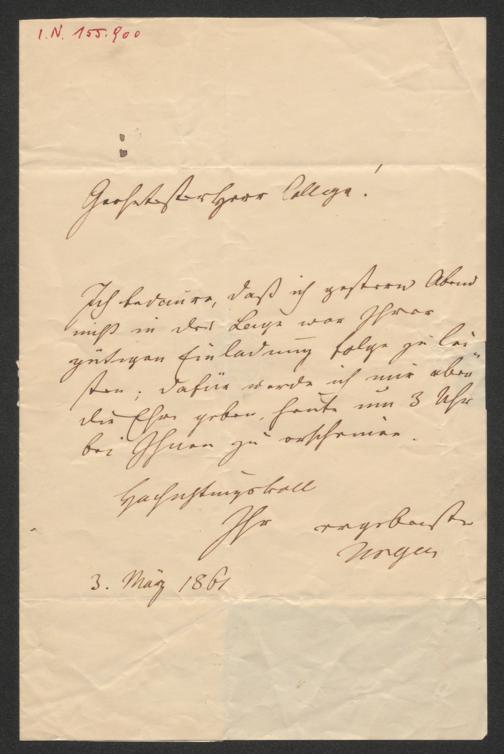 I.N. 155.900
Geehrtester Herr College!
Ich bedaure, daß ich gestern Abend
nicht in der Lage war Ihrer
gütigen Einladung folge zu lei
sten; dafür werde ich mir aber
die Ehre geben, heute um 3 Uhr
bei Ihnen zu erscheinen.
Hochachtungsvoll
Ihr ergebenster
3. März 1861